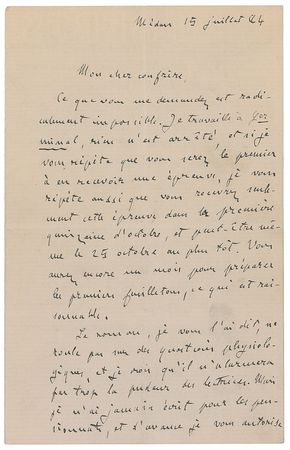 Médan 15 juillet 84
Mon cher confrère,
Ce que vous me demandez est radi-
calement impossible. Je travaille à Ger
minal, rien n'est arrêté, et si je
vous répète que vous serez le premier
à en recevoir une épreuve, je vous
répète aussi que vous recevrez seule-
ment cette épreuve dans la première
quinzaine d'octobre, et peut-être mê-
me le 25 octobre au plus tôt. Vous
aurez encore un mois pour préparer
les premiers feuilletons, ce qui est rai-
sonnable.
Le roman, je vous l'ai dit, ne
roule pas sur des questions physiolo-
giques, et je crois qu'il n'alarmera
pas trop la pudeur des lectrices. Mais
je n'ai jamais écrit pour les pen-
sionnats, et d'avance je vous autorise